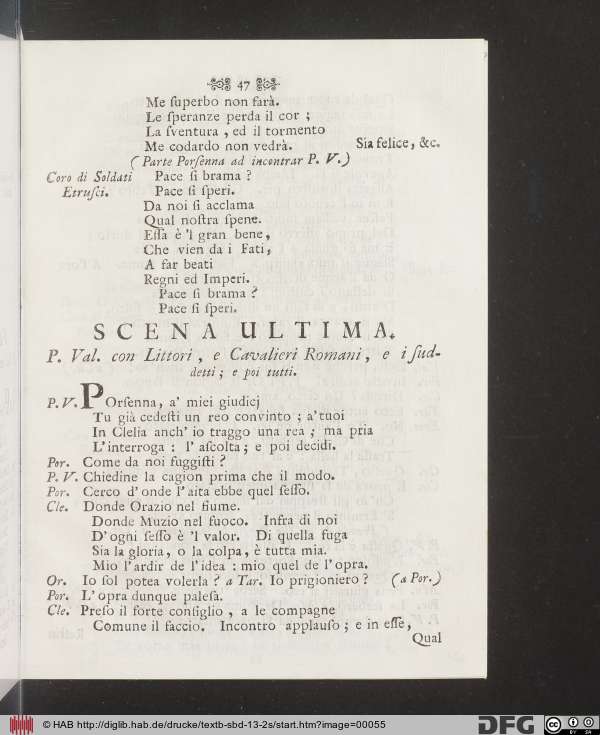 47
Me ſuperbo non farà.
Le ſperanze perda il cor ;
La ſventura , ed il tormento
Me codardo non vedrà. Sia felice, &c.
( Parte Porſenna ad incontrar P. V. )
Coro di Soldati Pace ſi brama ?
Etruſci. Pace ſi ſperi.
Da noi ſi acclama
Qual noſtra ſpene.
Eſſa è 'l gran bene,
Che vien da i Fati,
A far beati
Regni ed Imperi.
Pace ſi brama ?
Pace ſi ſperi.
SCENA ULTIMA.
P. Val. con Littori , e Cavalieri Romani , e i ſud-
detti ; e poi tutti.
P. V. POrſenna, a' miei giudicj
Tu già cedeſti un reo convinto ; a' tuoi
In Clelia anch' io traggo una rea ; ma pria
L' interroga : l' aſcolta ; e poi decidi.
Por. Come da noi fuggiſti ?
P. V. Chiedine la cagion prima che il modo.
Por. Cerco d' onde l' aita ebbe quel ſeſſo.
Cle. Donde Orazio nel fiume.
Donde Muzio nel fuoco. Infra di noi
D' ogni ſeſſo è 'l valor. Di quella fuga
Sia la gloria, o la colpa, è tutta mia.
Mio l' ardir de l' idea : mio quel de l' opra.
Or. Io ſol potea volerla ? a Tar. Io prigioniero ? ( a Por. )
Por. L' opra dunque paleſa.
Cle. Preſo il forte conſiglio , a le compagne
Comune il faccio. Incontro applauſo ; e in eſſe,
Qual
© HAB http://diglib.hab.de/drucke/textb-sbd-13-2s/start.htm?image=00055
DFG
cc BY SA